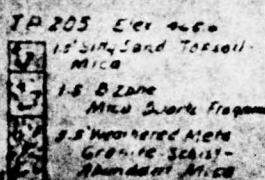 TP 205 Elev
1.5' Silty Sand Topsoil-
Mica
1.5 B Zone
Mica Quartz Fragmen
Weathered Meta
Granite-Schist-
Abundant Mica